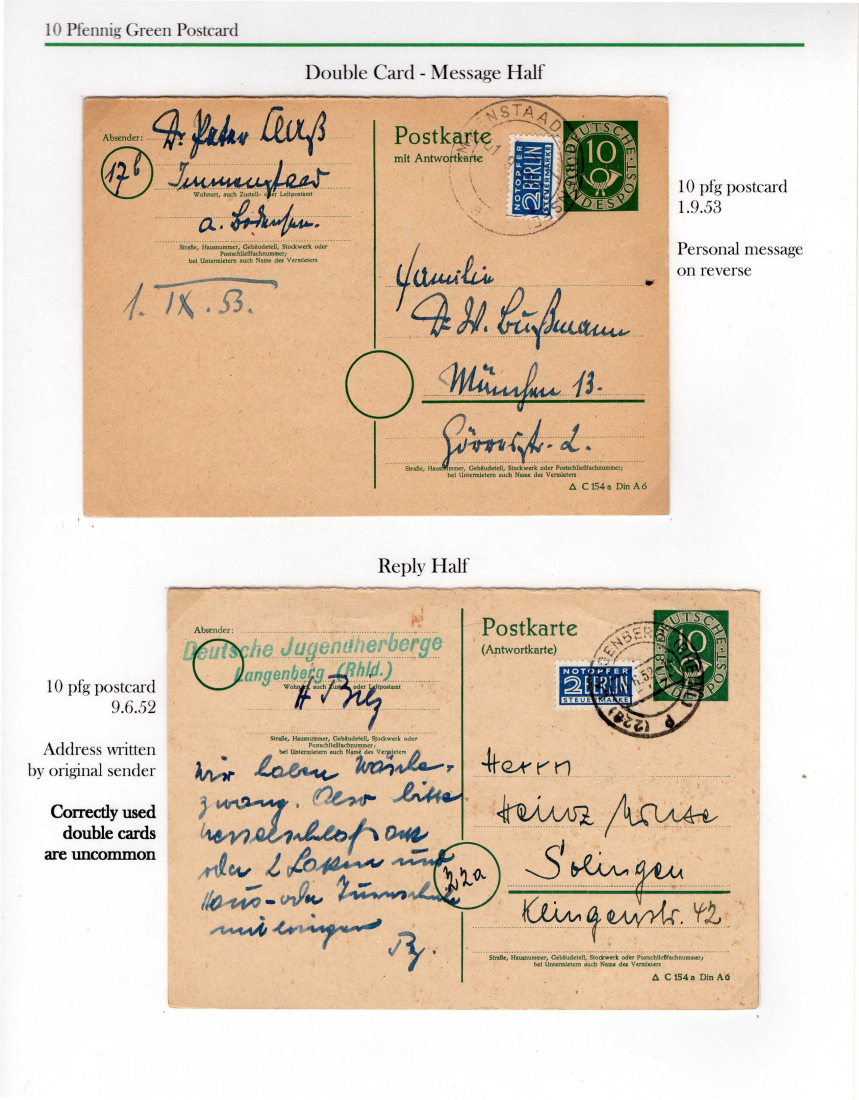 10 Pfennig Green Postcard
Double Card - Message Half
Absender:
Dr. Peter
17b
Immenstaad
Wohnort, auch Zustell- oder Leitpostamt
a. Bodensee.
Straße, Hausnummer, Gebäudeteil, Stockwerk oder
Postschließfachnummer;
bei Untermietern auch Name des Vermieters
1. IX. 53.
Postkarte
mit Antwortkarte
IMMENSTAAD
NOTOPFER
2 BERLIN
STEUERMARKE
DEUTSCHE BUNDESPOST
10
Familie
Dr. W. Bußmann
München 13.
Görresstr. 2.
Straße, Hausnummer, Gebäudeteil, Stockwerk oder Postschließfachnummer;
bei Untermietern auch Name des Vermieters
△ C 154 a Din A 6
10 pfg postcard
1.9.53
Personal message
on reverse
Reply Half
10 pfg postcard
9.6.52
Address written
by original sender
Correctly used
double cards
are uncommon
Absender:
Deutsche Jugendherberge
Langenberg (Rhld.)
Wohnort, auch Zustell- oder Leitpostamt
Straße, Hausnummer, Gebäudeteil, Stockwerk oder
Postschließfachnummer;
bei Untermietern auch Name des Vermieters
Wir haben Wäsche-
zwang. Also bitte
Nesselschlafsack
oder 2 Laken und
Haus- oder Turnschuhe
mitbringen
Postkarte
(Antwortkarte)
NOTOPFER
2 BERLIN
STEUERMARKE
LANGENBERG (RHEINL)
(22a)
DEUTSCHE BUNDESPOST
10
Herrn
Heinz
22a
Solingen
Klingenstr. 42
Straße, Hausnummer, Gebäudeteil, Stockwerk oder Postschließfachnummer;
bei Untermietern auch Name des Vermieters
△ C 154 a Din A 6